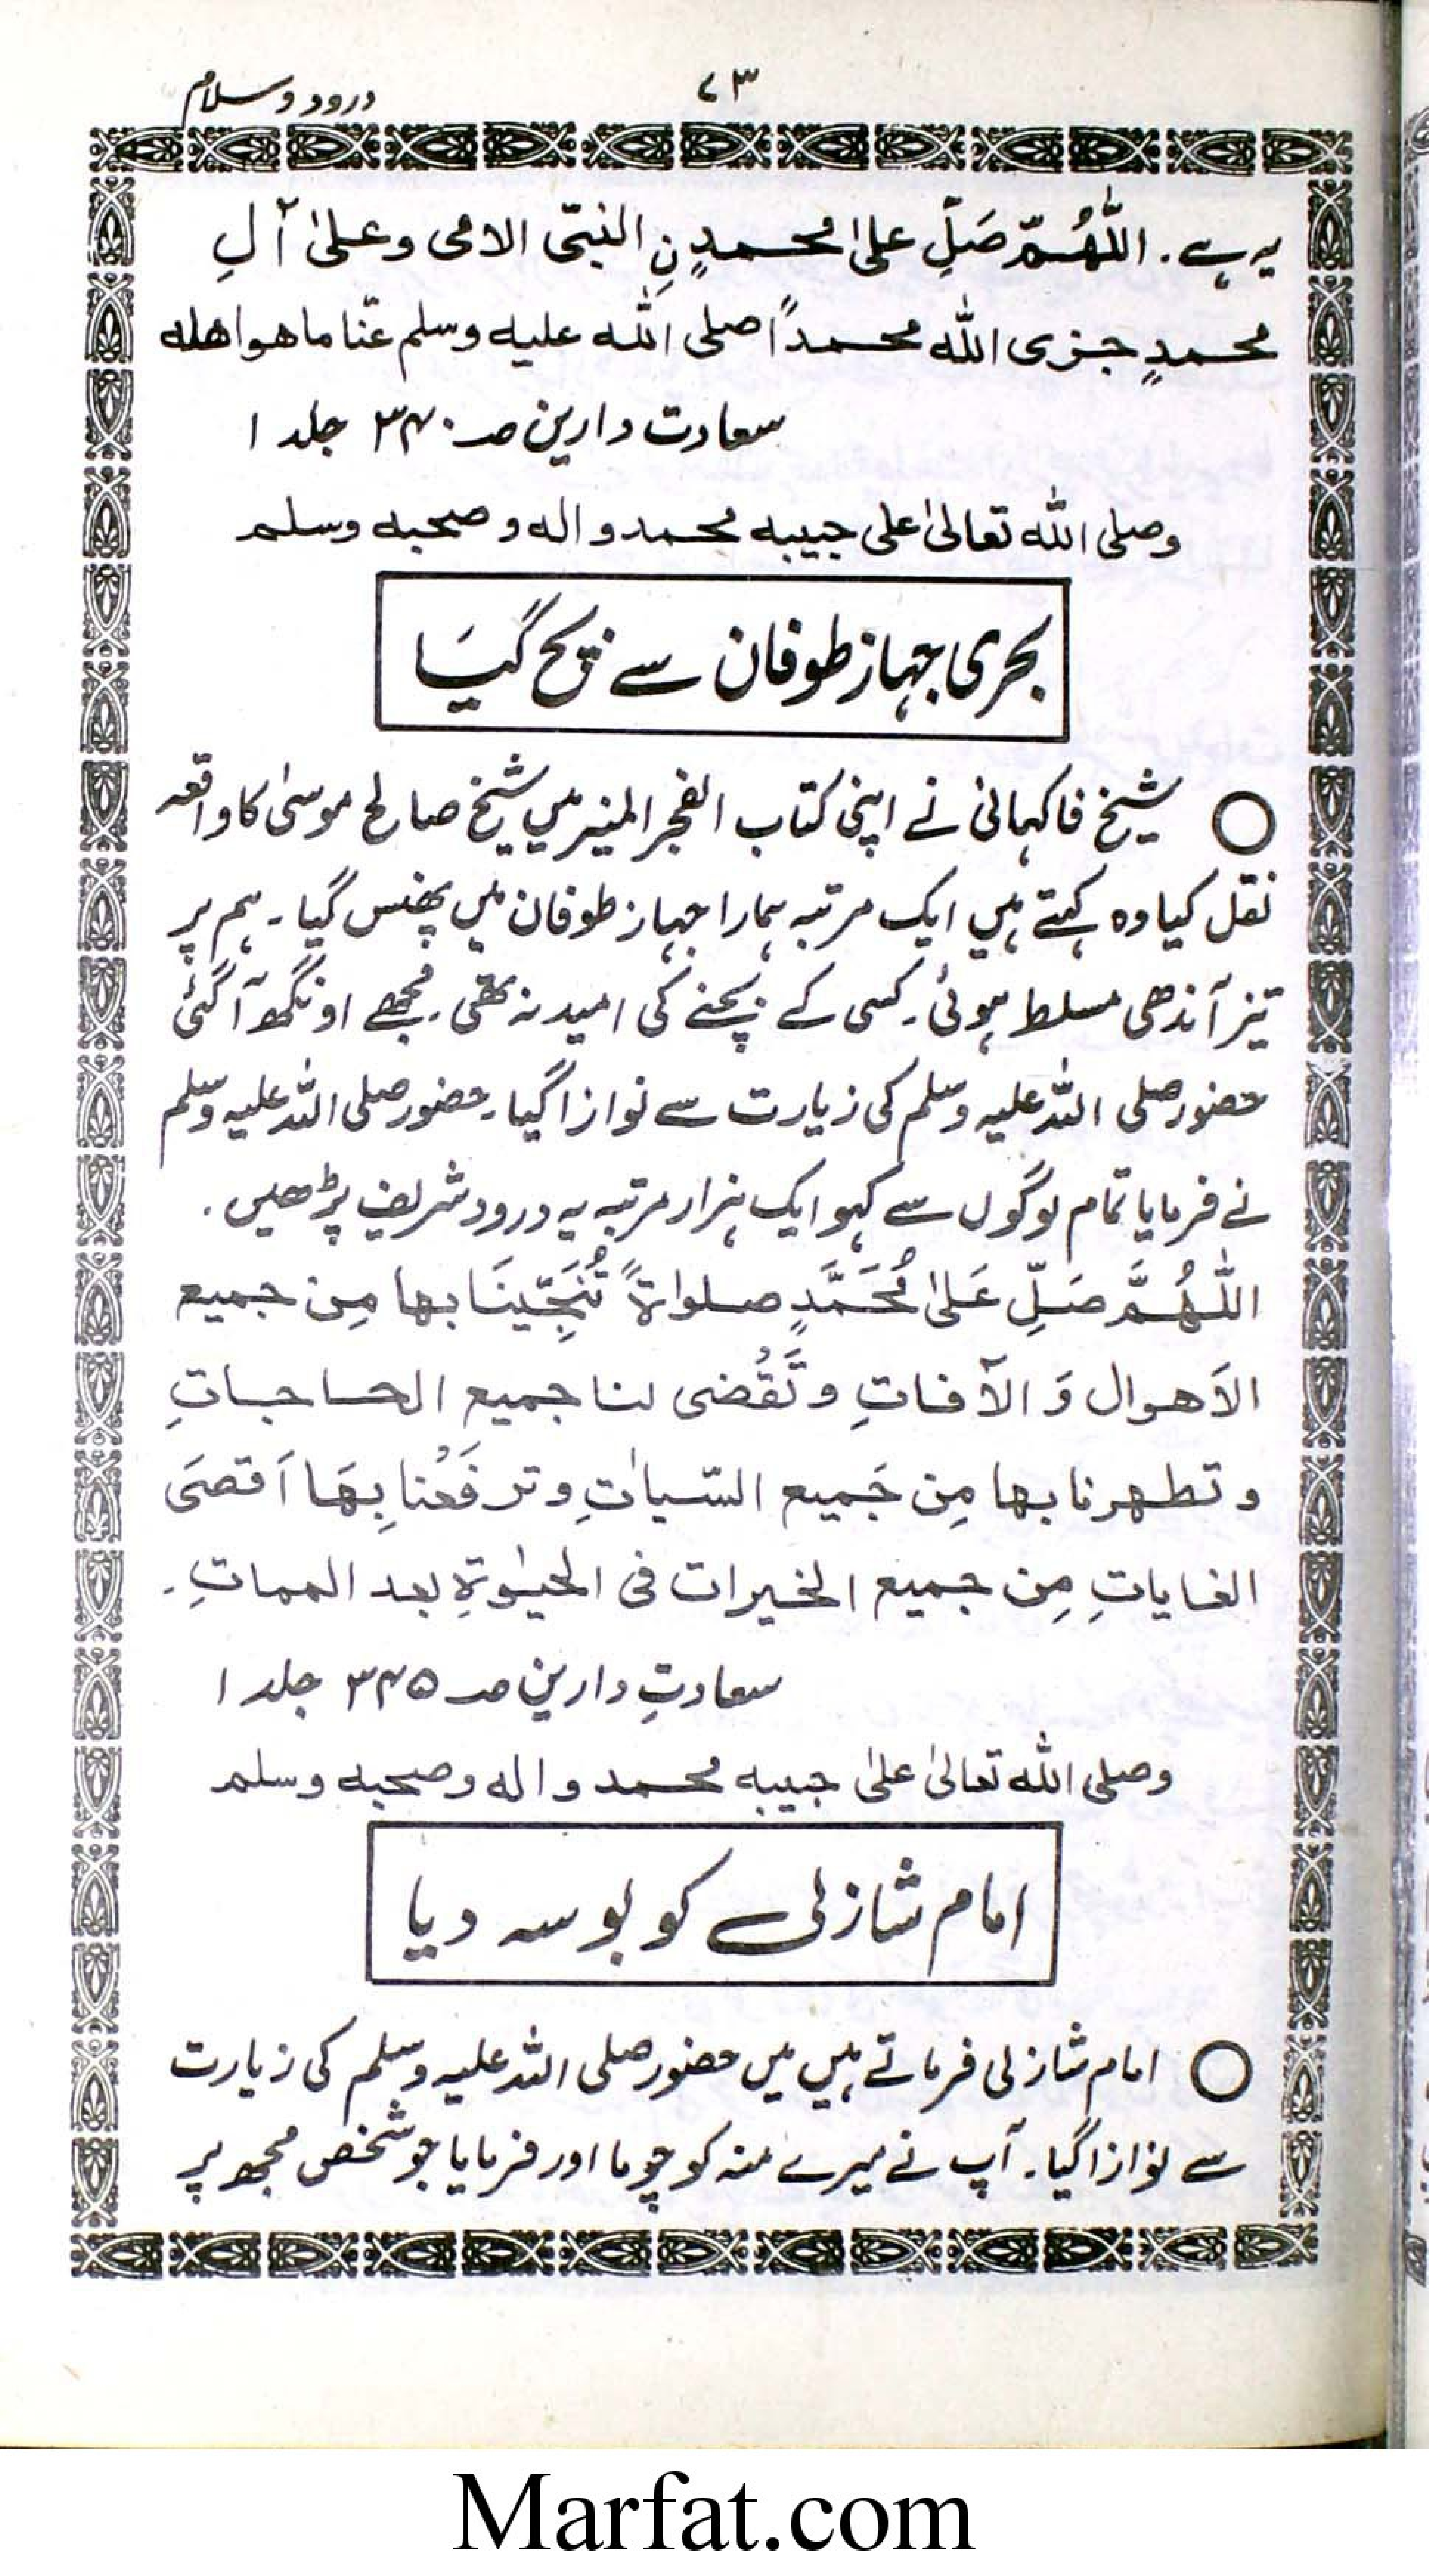 درود و سلام
۷۳
یہ ہے۔ اللّٰھُمّ صَلِّ علیٰ محمدٍنِ النبیّ الامی وعلیٰ آلِ
محمدٍ جزی اللّٰہ محمداً صلی اللّٰہ علیہ وسلم عنّا ماھواھلہ
سعادت دارین صـ ۳۴۰ جلد ۱
وصلی اللّٰہ تعالیٰ علی حبیبہ محمد والہ وصحبہ وسلم
بحری جہاز طوفان سے بچ گیَا
شیخ فاکہانی نے اپنی کتاب الفجر المنیر میں شیخ صالح موسیٰ کا واقعہ
نقل کیا وہ کہتے ہیں ایک مرتبہ ہمارا جہاز طوفان میں پھنس گیا۔ ہم پر
تیز آندھی مسلط ہوئی۔ کسی کے بچنے کی امید نہ تھی۔ مجھے اونگھ آگئی
حضور صلی اللّٰہ علیہ وسلم کی زیارت سے نوازا گیا۔ حضور صلی اللّٰہ علیہ وسلم
نے فرمایا تمام لوگوں سے کہو ایک ہزار مرتبہ یہ درود شریف پڑھیں۔
اللّٰھُمَّ صَلِّ عَلیٰ مُحَمَّدٍ صلواۃً تُنَجِّینَا بھا مِن جمیع
الاَھوال وَ الآفاتِ وتَّقُضی لنا جمیع الحاجاتِ
وتطھرنا بھا مِن جَمیع السّیاٰتِ وترفَعُنا بِھَا اَقصَی
الغایاتِ مِن جمیع الخیرات فی الحیٰوۃِ بعد المماتِ۔
سعادتِ دارین صـ ۳۴۵ جلد ۱
وصلی اللّٰہ تعالیٰ علیٰ حبیبہ محمد والہ وصحبہ وسلم
امام شازلی کو بوسہ دیا
امام شازلی فرماتے ہیں میں حضور صلی اللّٰہ علیہ وسلم کی زیارت
سے نوازا گیا۔ آپ نے میرے منہ کو چوما اور فرمایا جو شخص مجھ پر
Marfat.com